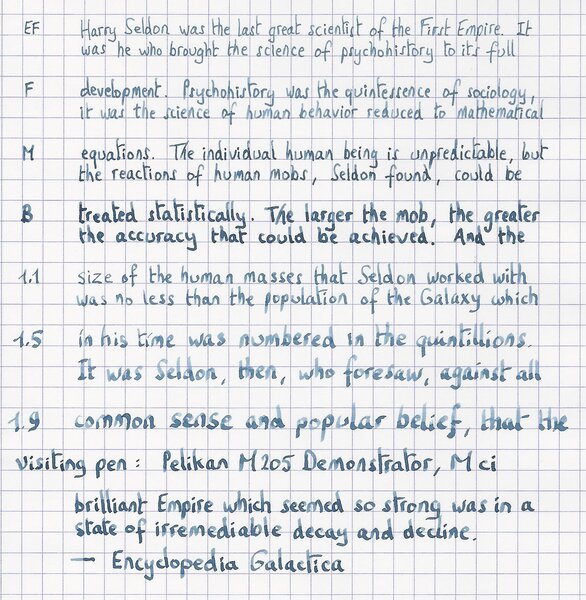 EF Harry Seldon was the last great scientist of the First Empire. It
was he who brought the science of psychohistory to its full
F development. Psychohistory was the quintessence of sociology,
it was the science of human behavior reduced to mathematical
M equations. The individual human being is unpredictable, but
the reactions of human mobs, Seldon found, could be
B treated statistically. The larger the mob, the greater
the accuracy that could be achieved. And the
1.1 size of the human masses that Seldon worked with
was no less than the population of the Galaxy which
1.5 in his time was numbered in the quintillions.
It was Seldon, then, who foresaw, against all
1.9 common sense and popular belief, that the
visiting pen: Pelikan M205 Demonstrator, M ci
brilliant Empire which seemed so strong was in a
state of irremediable decay and decline.
— Encyclopedia Galactica